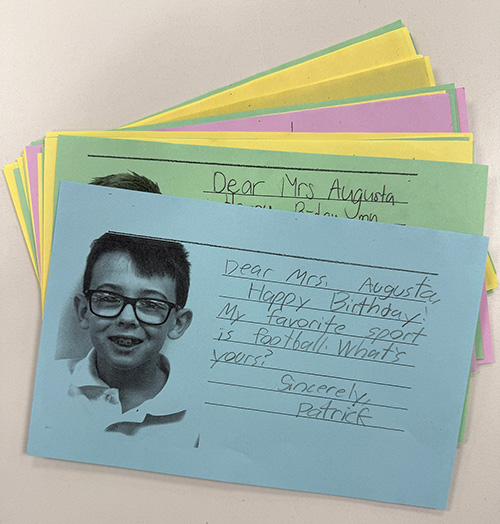 Dear Mrs Augusta
Happy
Dear Mrs. Augusta,
Happy Birthday!
My favorite sport
is football. What's
yours?
Sincerely,
Patrick